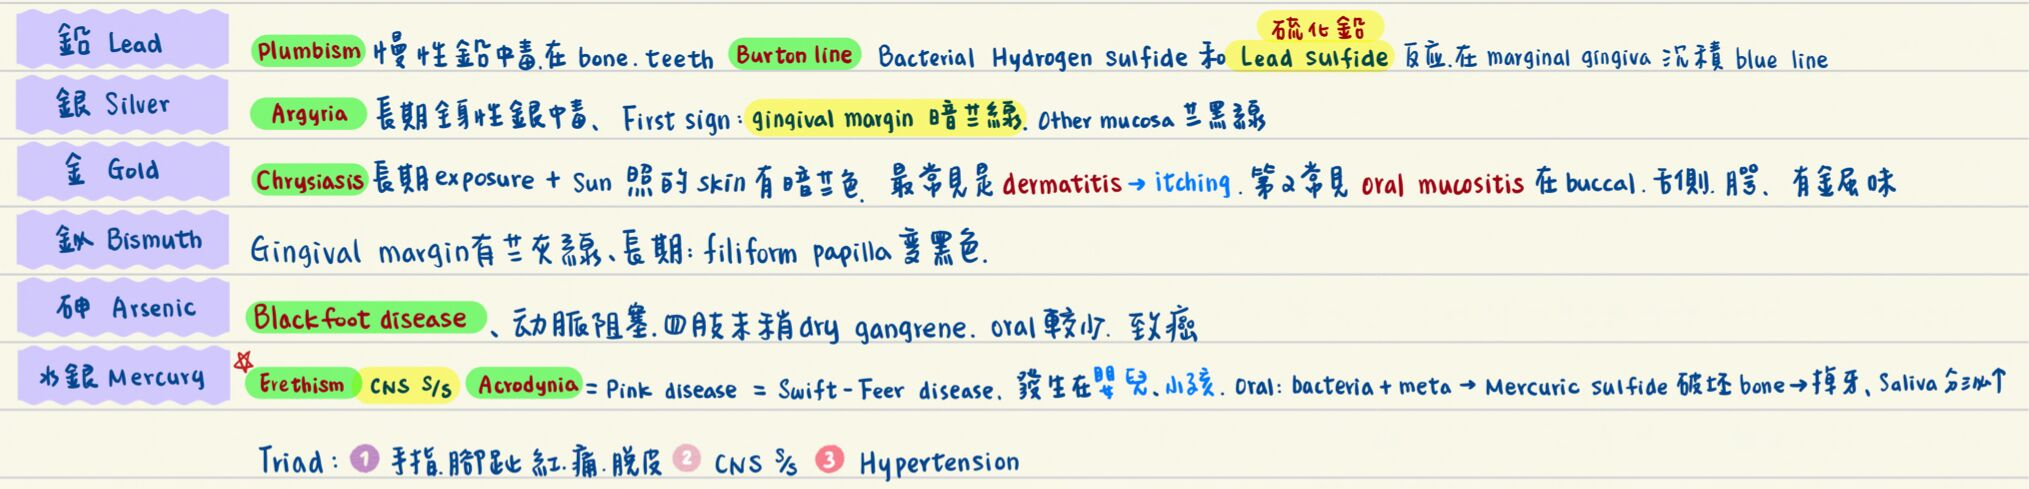 硫化鉛
鉛 Lead Plumbism 慢性鉛中毒.在 bone. teeth Burton line Bacterial Hydrogen sulfide 和 Lead sulfide 反应.在 marginal gingiva 沉積 blue line
銀 Silver Argyria 長期全身性銀中毒、First sign: gingival margin 暗芏線. Other mucosa 芏黑線
金 Gold Chrysiasis 長期 exposure + Sun 照的 skin 有暗芏色. 最常見是 dermatitis → itching. 第2常見 oral mucositis 在 buccal. 舌側. 腭、有金屬味
鉍 Bismuth Gingival margin有芏灰線、長期: filiform papilla 變黑色.
砷 Arsenic Blackfoot disease、动脈阻塞.四肢末稍dry gangrene. oral 較少. 致癌
水銀 Mercury Erethism CNS S/S Acrodynia = Pink disease = Swift-Feer disease. 發生在嬰兒、小孩. Oral: bacteria + meta → Mercuric sulfide 破坏 bone → 掉牙、Saliva 分泌↑
Triad: 1 手指.腳趾紅.痛.脫皮 2 CNS S/S 3 Hypertension